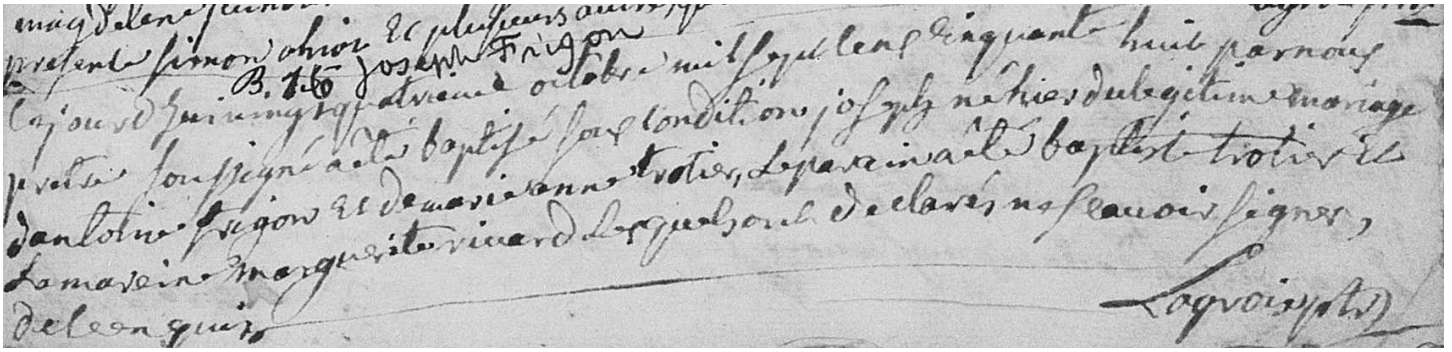 magdelene
presente simon et plusieurs autres
B. 76 Joseph Frigon
Cejourdhui vingtquatrieme octobre mil sept cens cinquante huit par nous
pretre soussigné a èté baptisé sous condition joseph né hier du legitime mariage
dantoine frigon et de marieanne trotier, Le parain a èté baptiste trotier et
La mareine marguerite rivard Lesquels ont declarés ne scavoir signer,
de ce enquis
Lagroix ptr